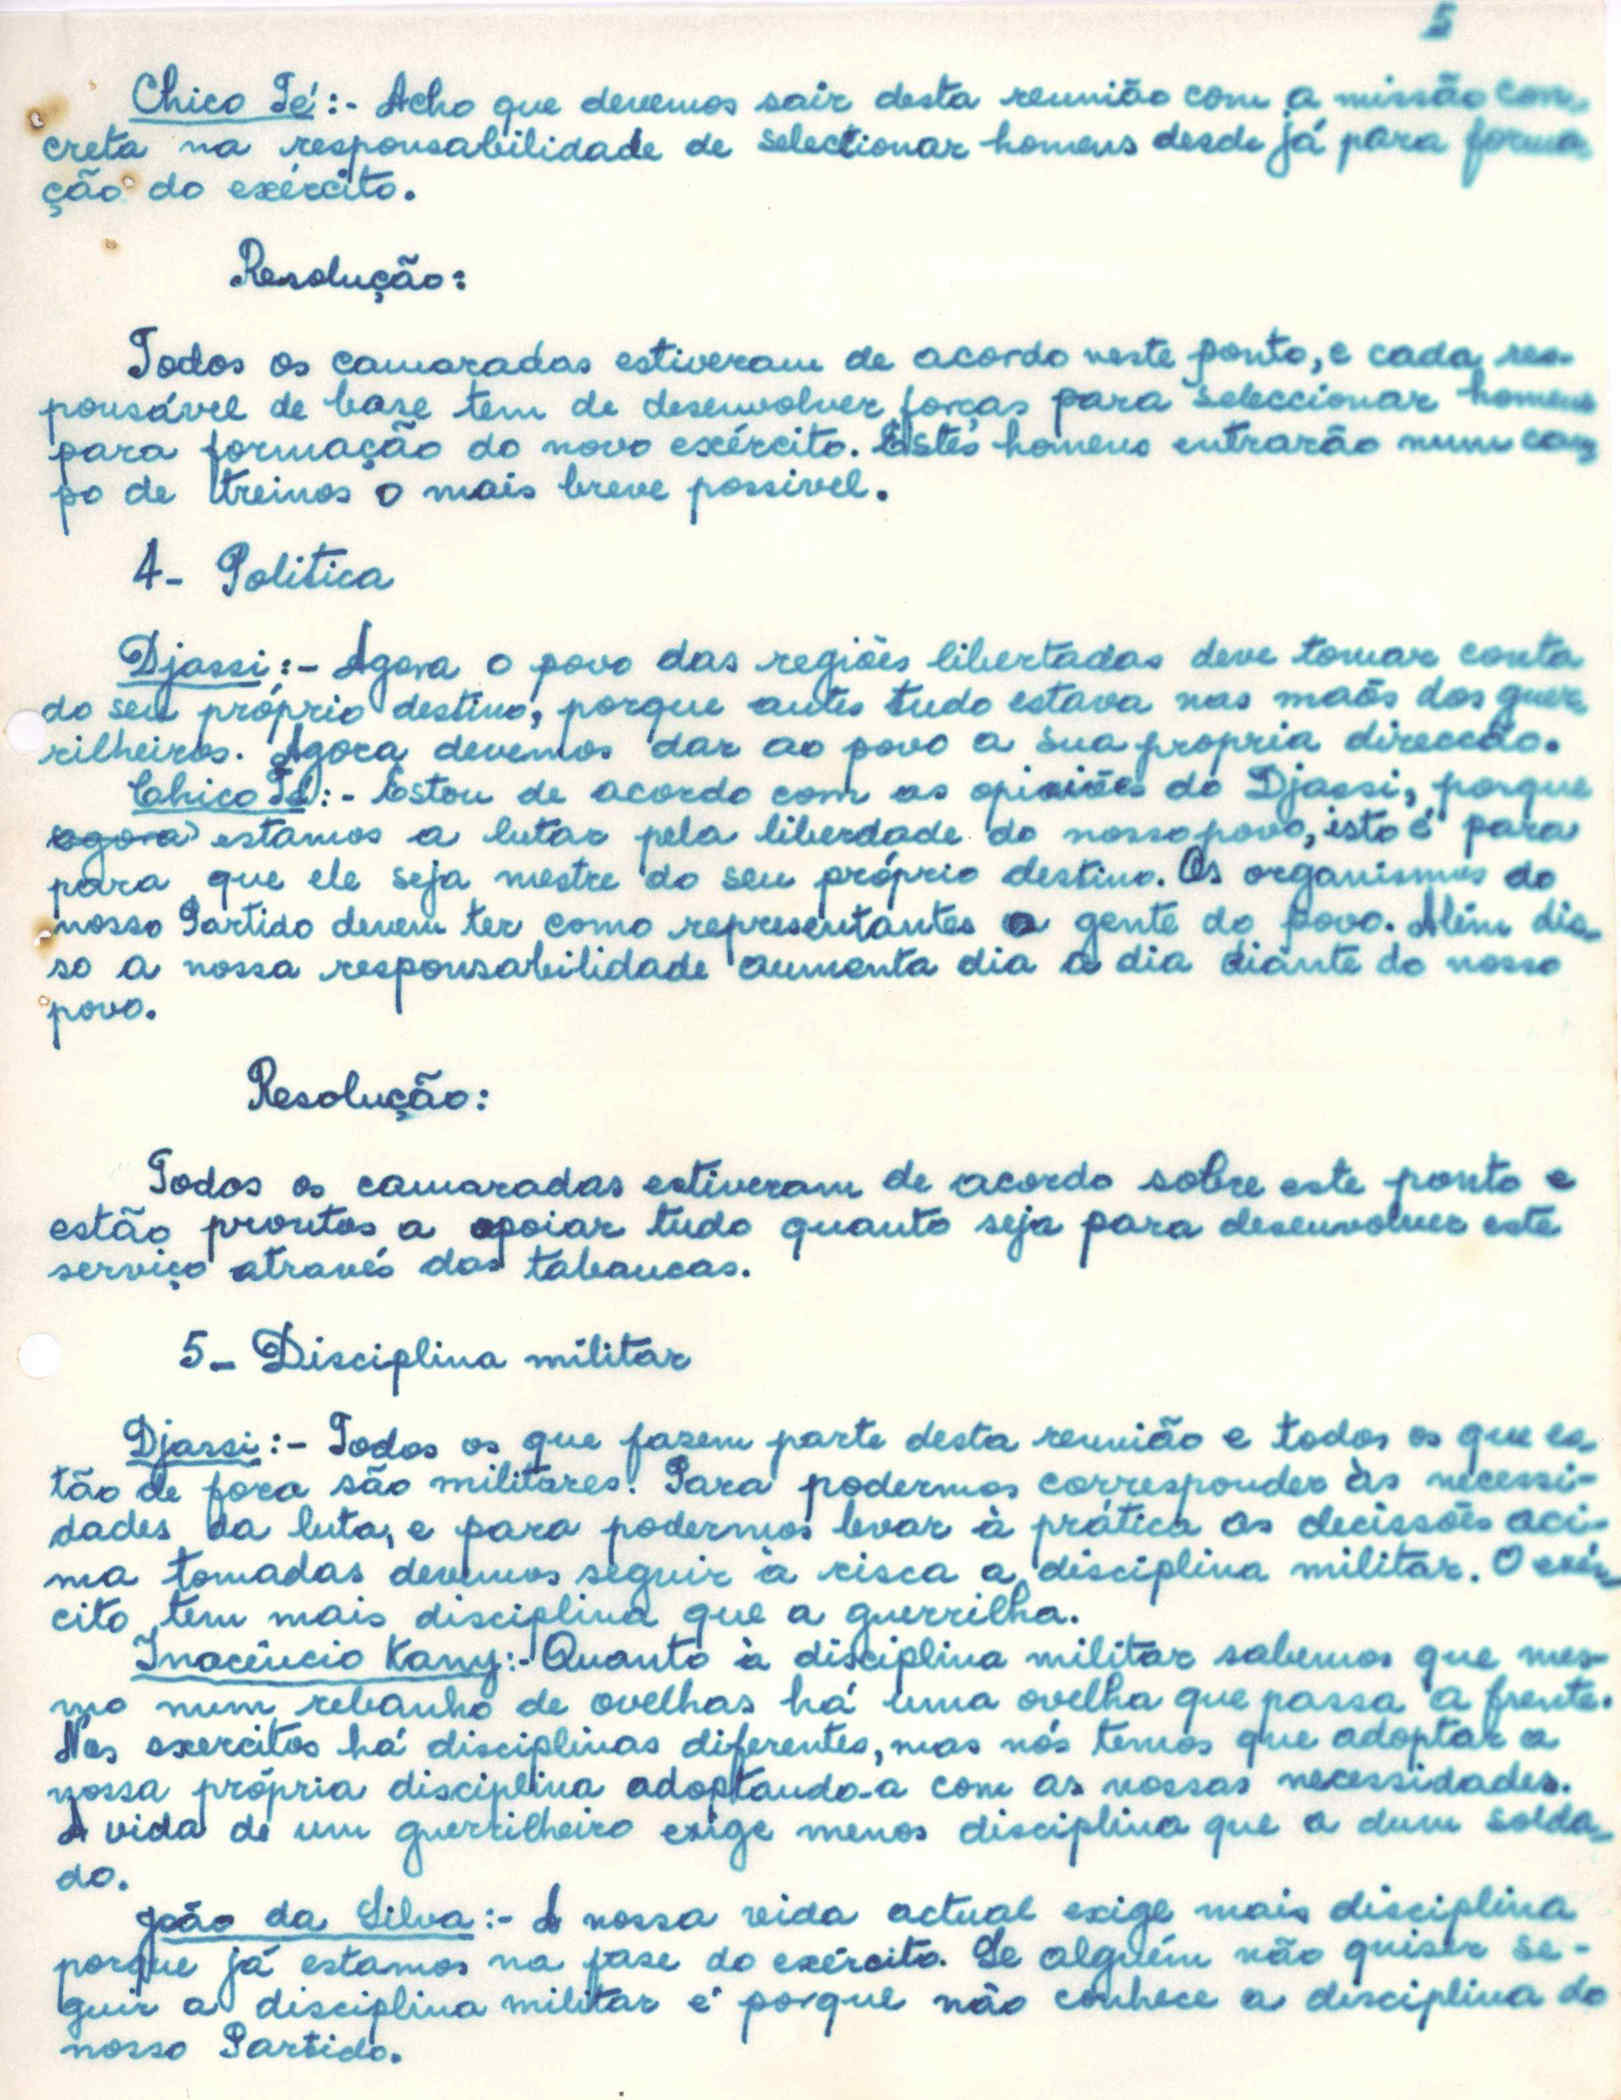 5
Chico Té:- Acho que devemos sair desta reunião com a missão con-
creta na responsabilidade de selectionar homens desde já para forma-
ção do exército.
Resolução:
Todos os camaradas estiveram de acordo neste ponto, e cada res-
ponsável de base tem de desenvolver forças para seleccionar homens
para formação do novo exército. Estes homens entrarão num cam-
po de treinos o mais breve possivel.
4- Politica
Djassi:- Agora o povo das regiões libertadas deve tomar conta
do seu próprio destino, porque antes tudo estava nas maõs dos guer-
rilheiros. Agora devemos dar ao povo a sua propria direcção.
Chico Té:- Estou de acordo com as opiniões do Djassi, porque
agora estamos a lutar pela liberdade do nosso povo, isto é para
para que ele seja mestre do seu próprio destino. Os organismos do
nosso Partido devem ter como representantes a gente do povo. Além dis-
so a nossa responsabilidade aumenta dia a dia diante do nosso
povo.
Resolução:
Todos os camaradas estiveram de acordo sobre este ponto e
estão prontos a apoiar tudo quanto seja para desenvolver este
serviço através das tabancas.
5- Disciplina militar
Djassi:- Todos os que fazem parte desta reunião e todos os que es-
tão de fora são militares. Para podermos corresponder às necessi-
dades da luta, e para podermos levar à prática as decissões aci-
ma tomadas devemos seguir à risca a disciplina militar. O exér-
cito tem mais disciplina que a guerrilha.
Inocêncio Kany:- Quanto à disciplina militar sabemos que mes-
mo num rebanho de ovelhas há uma ovelha que passa à frente.
Nos exercitos há disciplinas diferentes, mas nós temos que adoptar a
nossa própria disciplina adoptando-a com as nossas necessidades.
A vida de um guerrilheiro exige menos disciplina que a dum solda-
do.
João da Silva:- A nossa vida actual exige mais disciplina
porque já estamos na fase do exército. Se alguém não quiser se-
guir a disciplina militar é porque não conhece a disciplina do
nosso Partido.